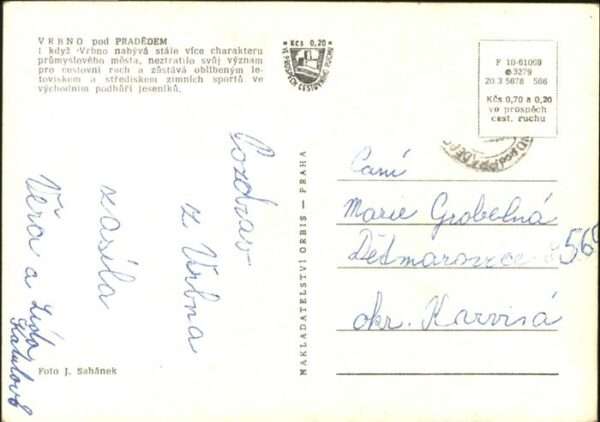 VRBNO pod PRADĚDEM
I když Vrbno nabývá stále více charakteru
průmyslového města, neztratilo svůj význam
pro cestovní ruch a zůstává oblíbeným le-
toviskem a střediskem zimních sportů ve
východním podhůří Jeseníků.
Kčs 0,20
VE PROSPĚCH CESTOVNÍHO RUCHU
F 10-61069
3279
20.3 5678 566
Kčs 0,70 a 0,20
ve prospěch
cest. ruchu
Pozdrav
z Vrbna
zasílá
Věra a Lída
NAKLADATELSTVÍ ORBIS — PRAHA
Paní
Marie Grobelná
Dětmarovice
okr. Karviná
Foto J. Sahánek